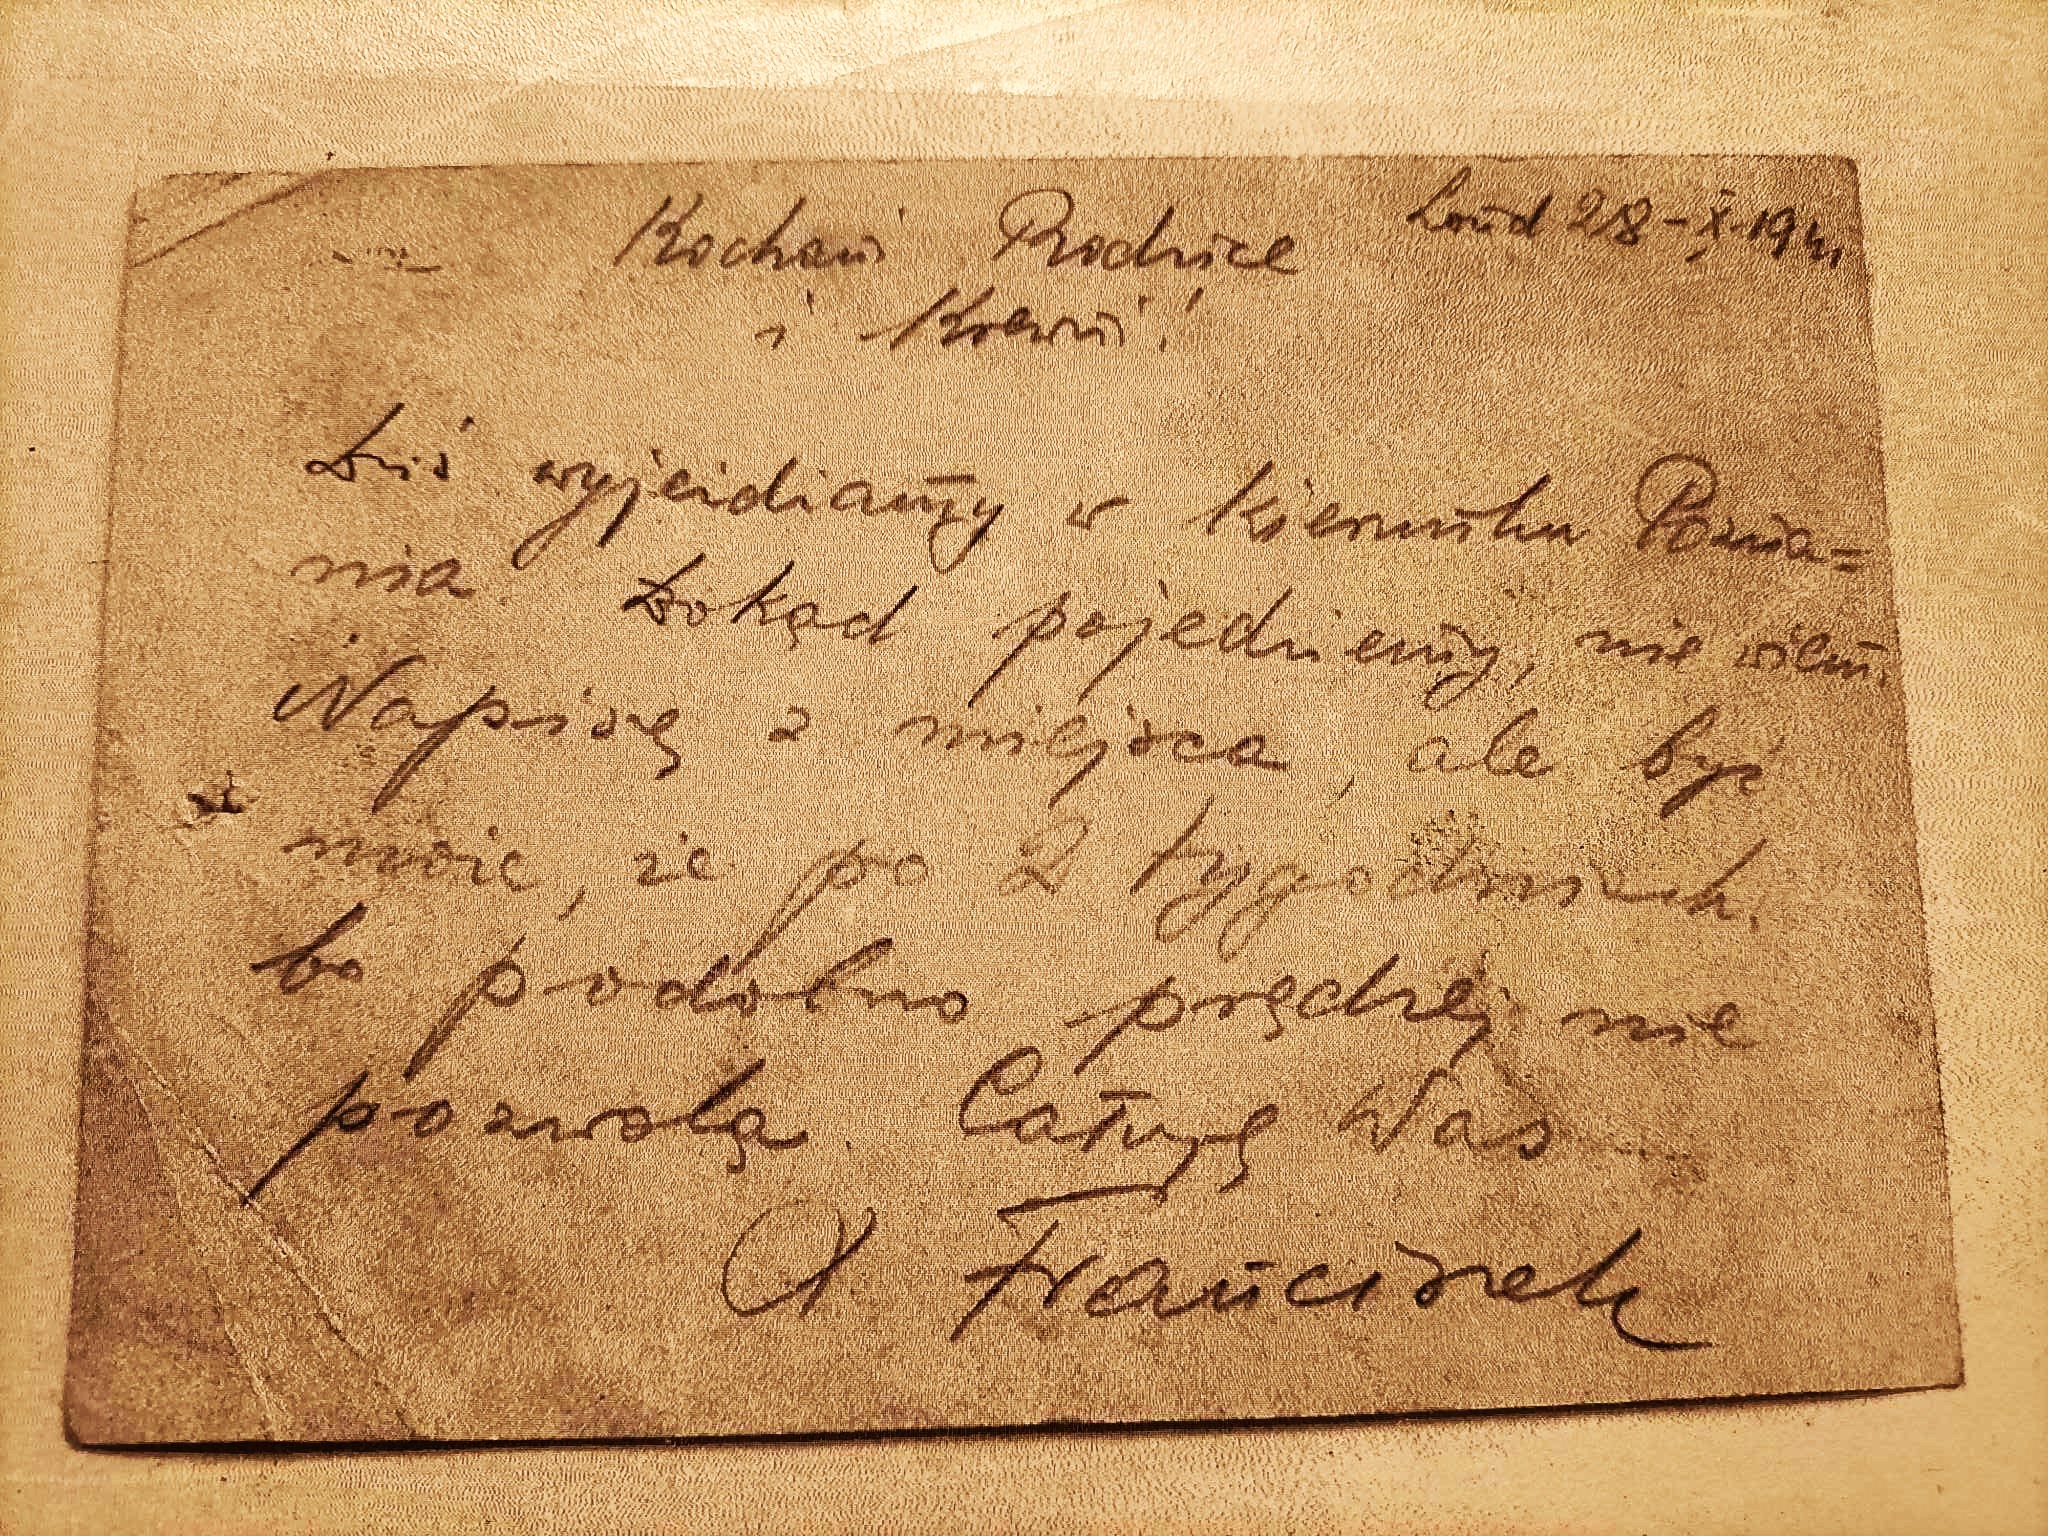 Kochani Rodzice Ląd 28-X-1941
i Krewni!
Dziś wyjeżdżamy w kierunku Pozna=
nia. Dokąd pojedziemy, nie wiem.
Napiszę z miejsca, ale być
może, że po 2 tygodniach,
bo podobno prędzej nie
pozwolą. Całuję Was
X Franciszek